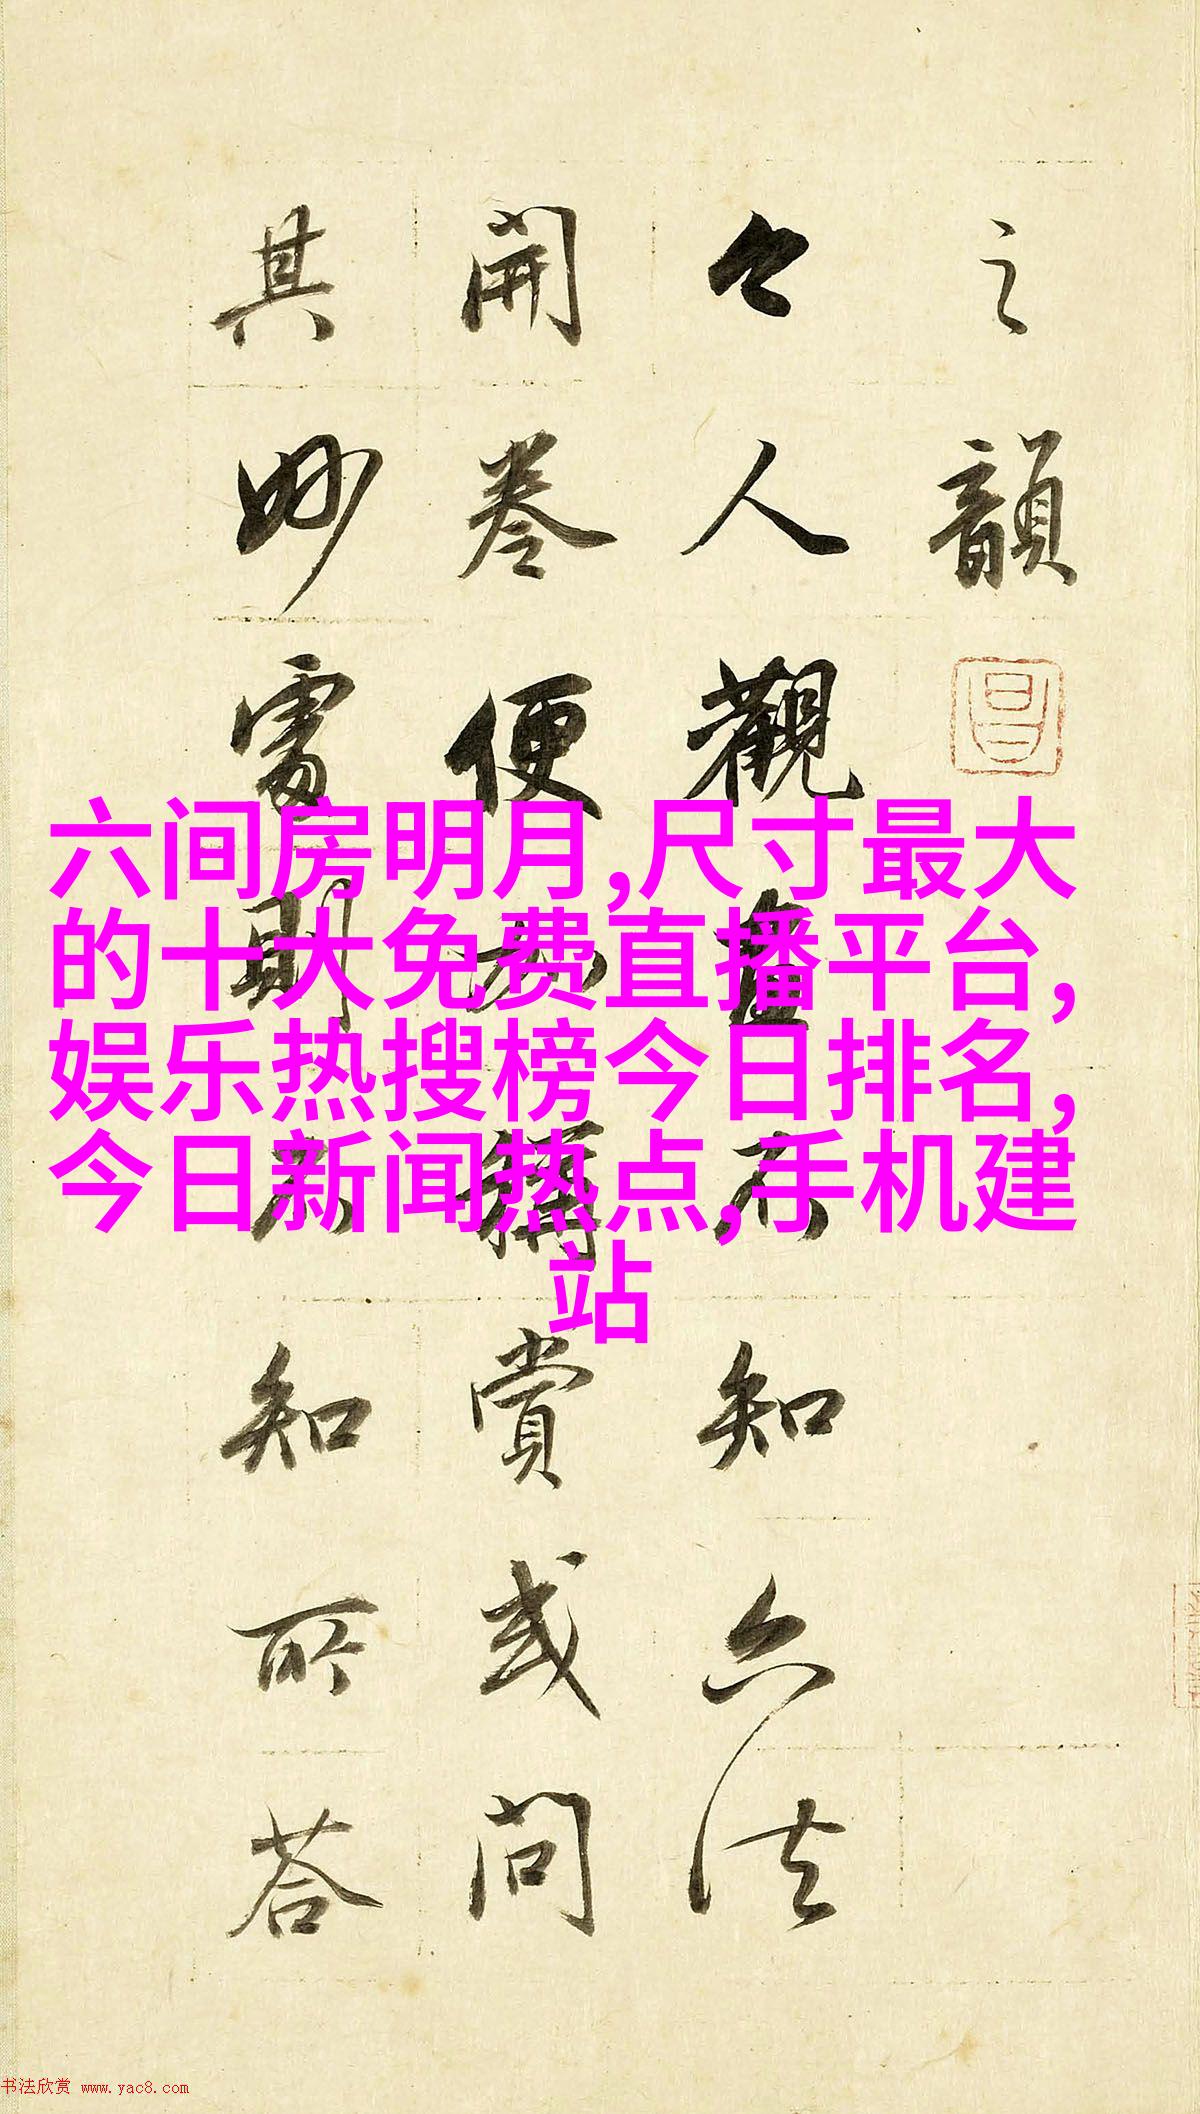 之韻
今人觀畫不知六法
開卷便加稱賞或問
其妙處則不知所荅
六间房明月,尺寸最大
的十大免费直播平台,
娱乐热搜榜今日排名,
今日新闻热点,手机建
站
书法欣赏 www.yac8.com